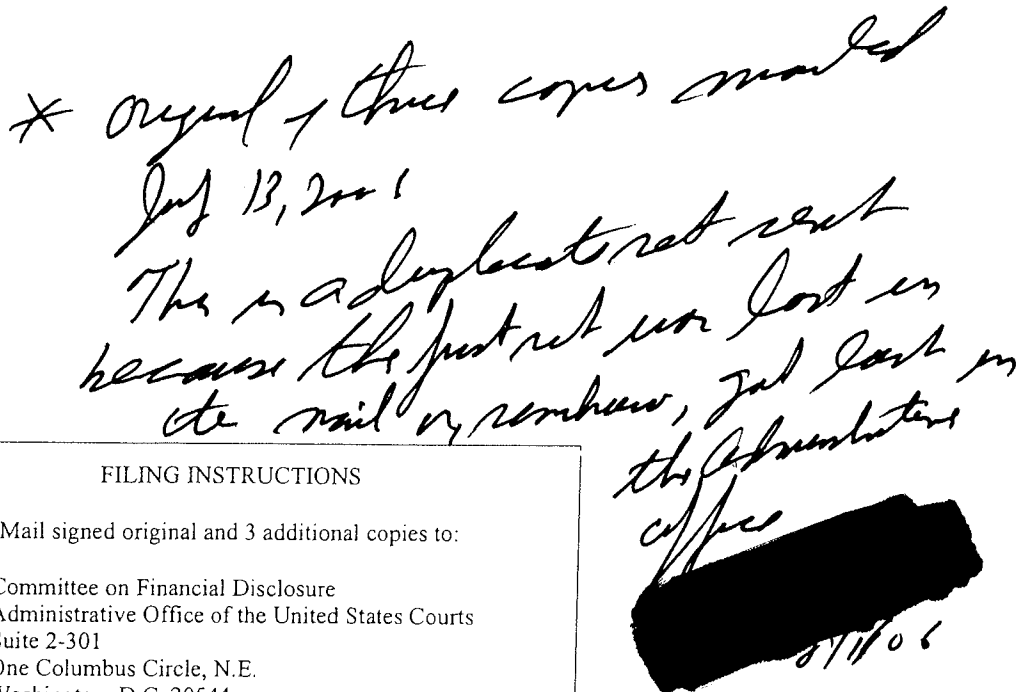 * Original & three copies mailed
July 13, 2006
This is a duplicate set sent
because the first set was lost in
the mail or, somehow, got lost in
the Administrative
office
8/1/06
FILING INSTRUCTIONS
Mail signed original and 3 additional copies to:
Committee on Financial Disclosure
Administrative Office of the United States Courts
Suite 2-301
One Columbus Circle, N.E.
Washington, D.C. 20544